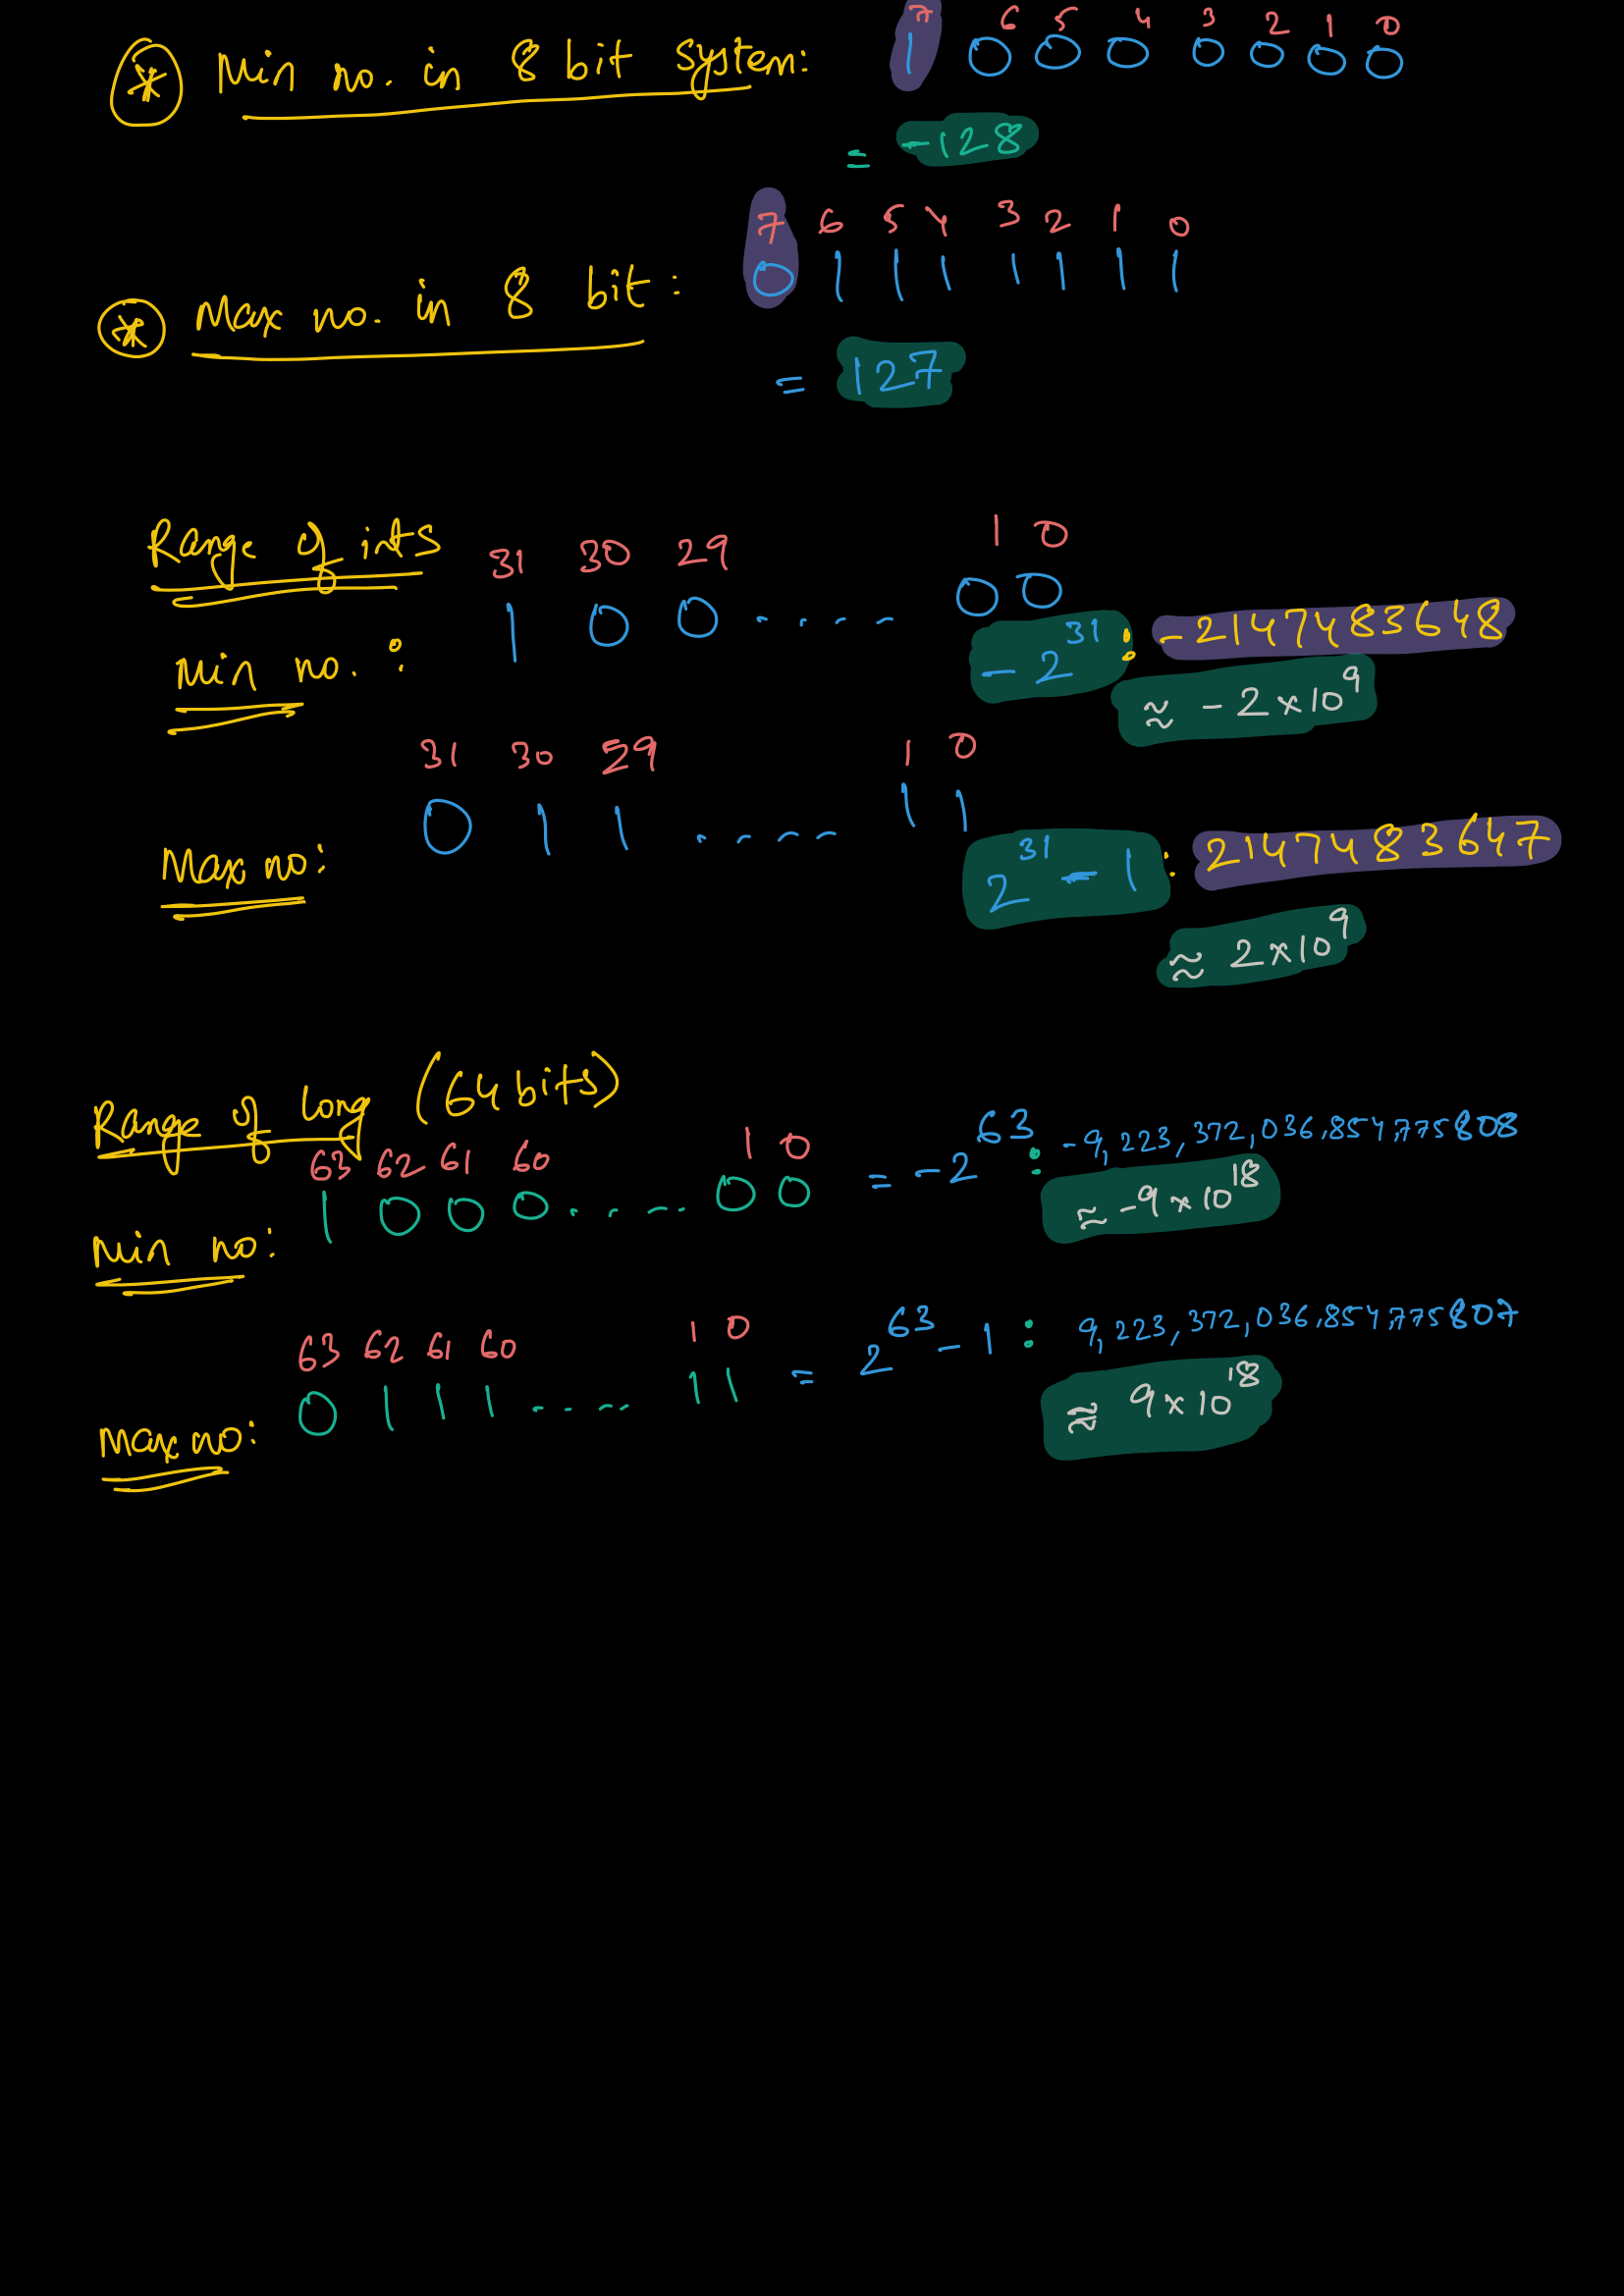 7 6 5 4 3 2 1 0
* Min no. in 8 bit system: 1 0 0 0 0 0 0 0
= -128
7 6 5 4 3 2 1 0
* Max no. in 8 bit: 0 1 1 1 1 1 1 1
= 127
Range of ints
31 30 29 1 0
Min no. : 1 0 0 .... 0 0
-2³¹ : -2147483648
≈ -2×10⁹
31 30 29 1 0
Max no: 0 1 1 .... 1 1
2³¹ - 1 : 2147483647
≈ 2×10⁹
Range of long (64 bits)
63 62 61 60 1 0
Min no: 1 0 0 0 .... 0 0 = -2⁶³ : -9,223,372,036,854,775808
≈ -9×10¹⁸
63 62 61 60 1 0
Max no: 0 1 1 1 .... 1 1 = 2⁶³ - 1 : 9,223,372,036,854,775807
≈ 9×10¹⁸